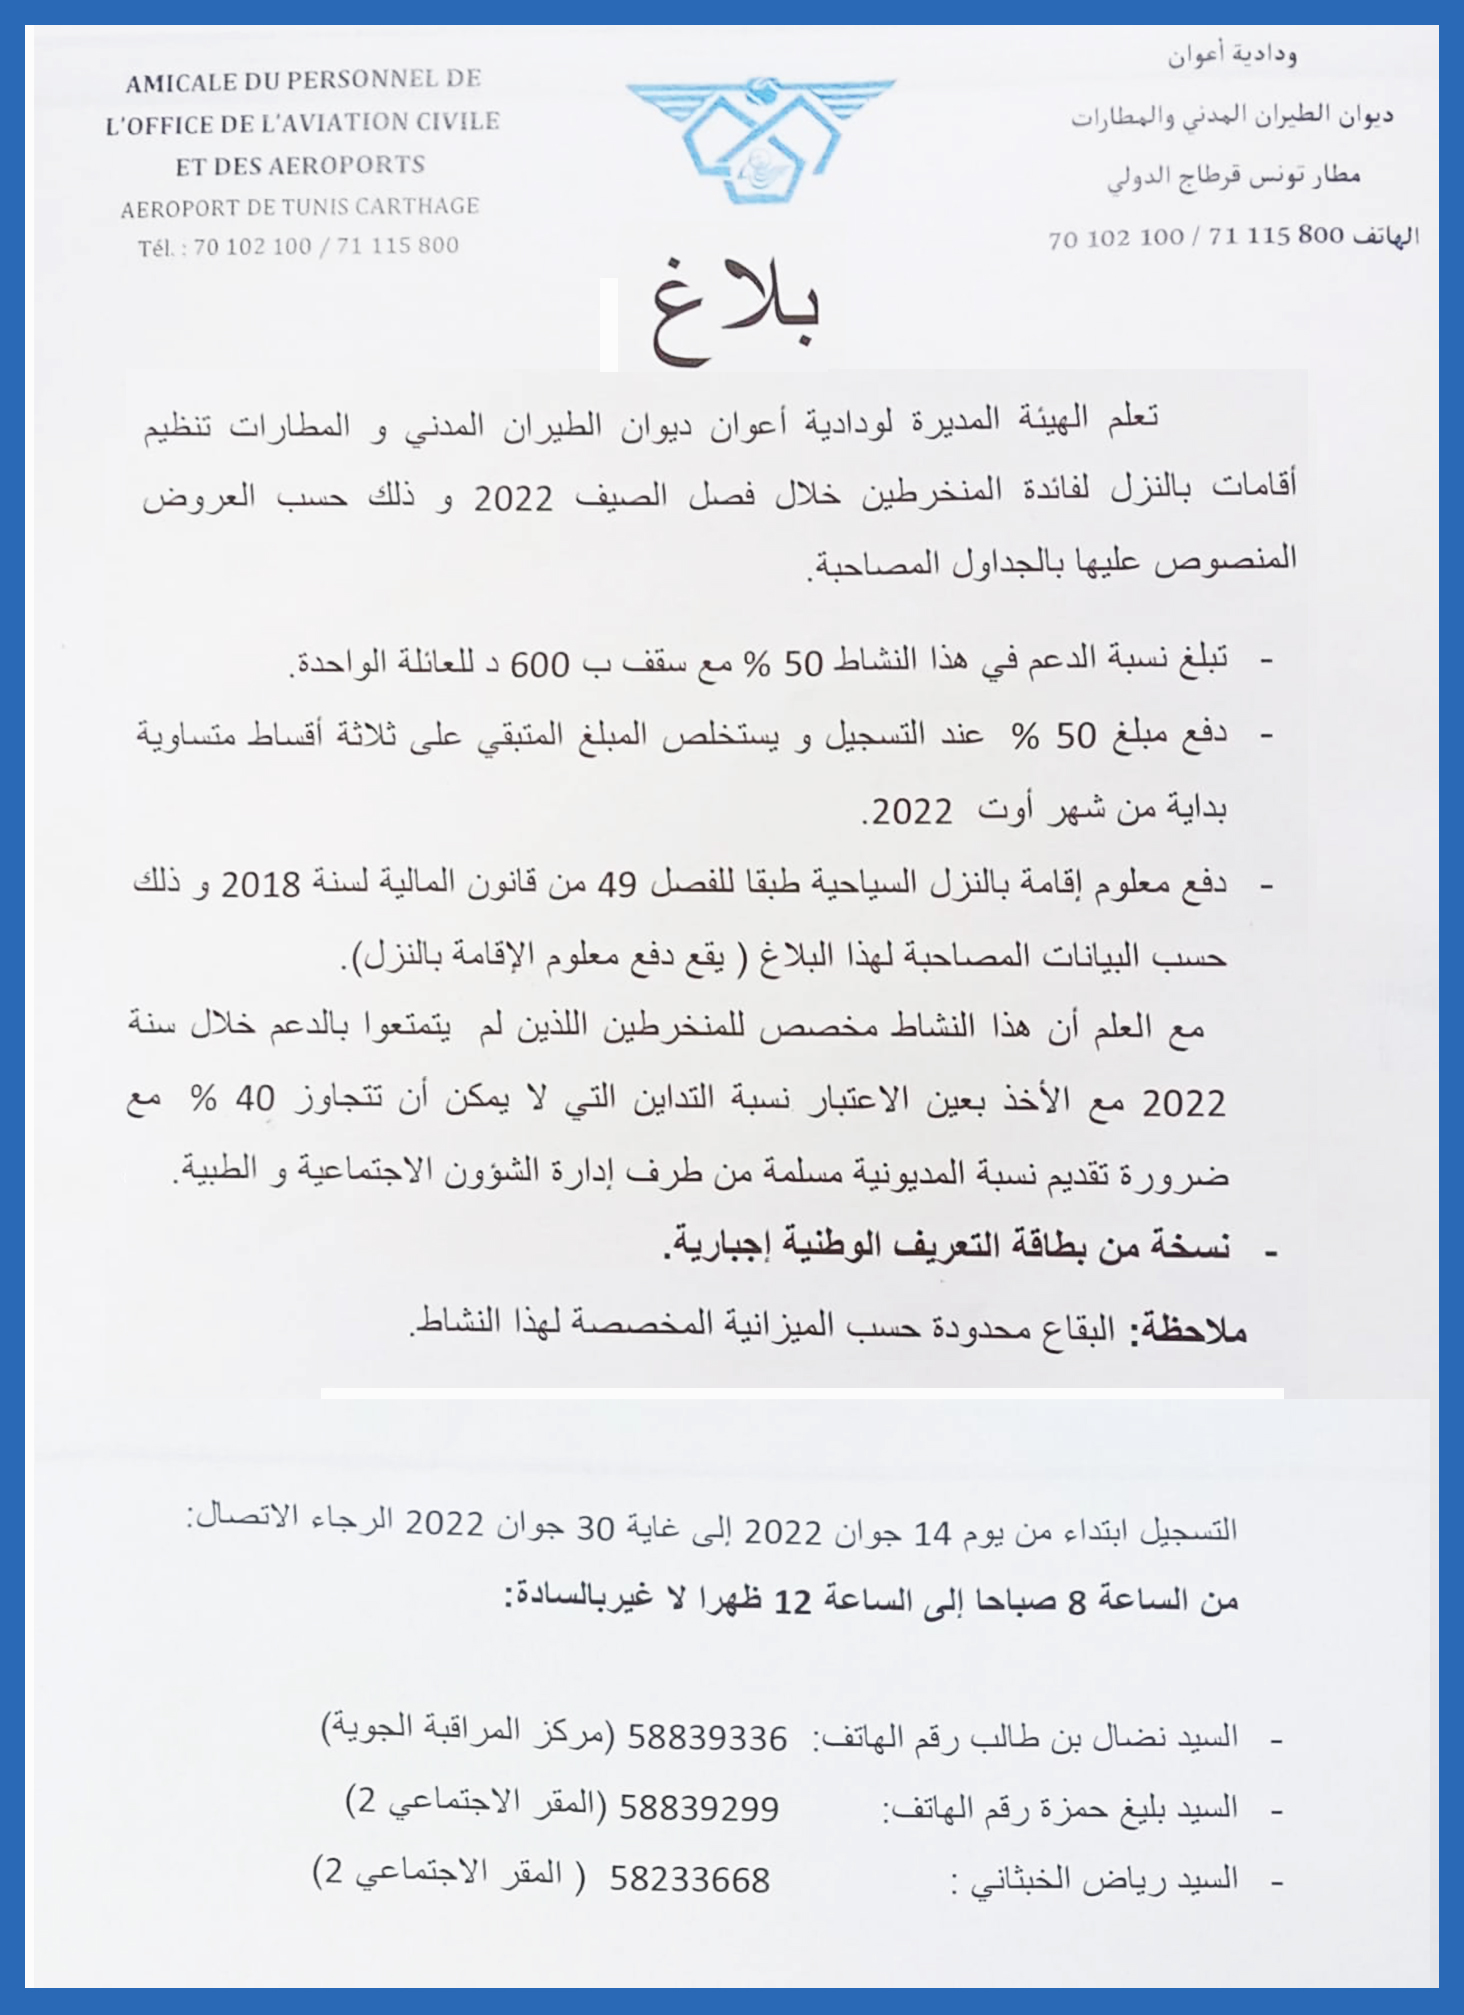 AMICALE DU PERSONNEL DE
L'OFFICE DE L'AVIATION CIVILE
ET DES AEROPORTS
AEROPORT DE TUNIS CARTHAGE
Tél. : 70 102 100 / 71 115 800
ودادية أعوان
ديوان الطيران المدني والمطارات
مطار تونس قرطاج الدولي
الهاتف 800 115 71 / 100 102 70
بلاغ
تعلم الهيئة المديرة لودادية أعوان ديوان الطيران المدني و المطارات تنظيم
أقامات بالنزل لفائدة المنخرطين خلال فصل الصيف 2022 و ذلك حسب العروض
المنصوص عليها بالجداول المصاحبة.
- تبلغ نسبة الدعم في هذا النشاط 50 % مع سقف ب 600 د للعائلة الواحدة.
- دفع مبلغ 50 % عند التسجيل و يستخلص المبلغ المتبقي على ثلاثة أقساط متساوية
بداية من شهر أوت 2022.
- دفع معلوم إقامة بالنزل السياحية طبقا للفصل 49 من قانون المالية لسنة 2018 و ذلك
حسب البيانات المصاحبة لهذا البلاغ ( يقع دفع معلوم الإقامة بالنزل).
مع العلم أن هذا النشاط مخصص للمنخرطين اللذين لم يتمتعوا بالدعم خلال سنة
2022 مع الأخذ بعين الاعتبار نسبة التداين التي لا يمكن أن تتجاوز 40 % مع
ضرورة تقديم نسبة المديونية مسلمة من طرف إدارة الشؤون الاجتماعية و الطبية.
- نسخة من بطاقة التعريف الوطنية إجبارية.
ملاحظة: البقاع محدودة حسب الميزانية المخصصة لهذا النشاط.
التسجيل ابتداء من يوم 14 جوان 2022 إلى غاية 30 جوان 2022 الرجاء الاتصال:
من الساعة 8 صباحا إلى الساعة 12 ظهرا لا غيربالسادة:
- السيد نضال بن طالب رقم الهاتف: 58839336 (مركز المراقبة الجوية)
- السيد بليغ حمزة رقم الهاتف: 58839299 (المقر الاجتماعي 2)
- السيد رياض الخبثاني : 58233668 ( المقر الاجتماعي 2)